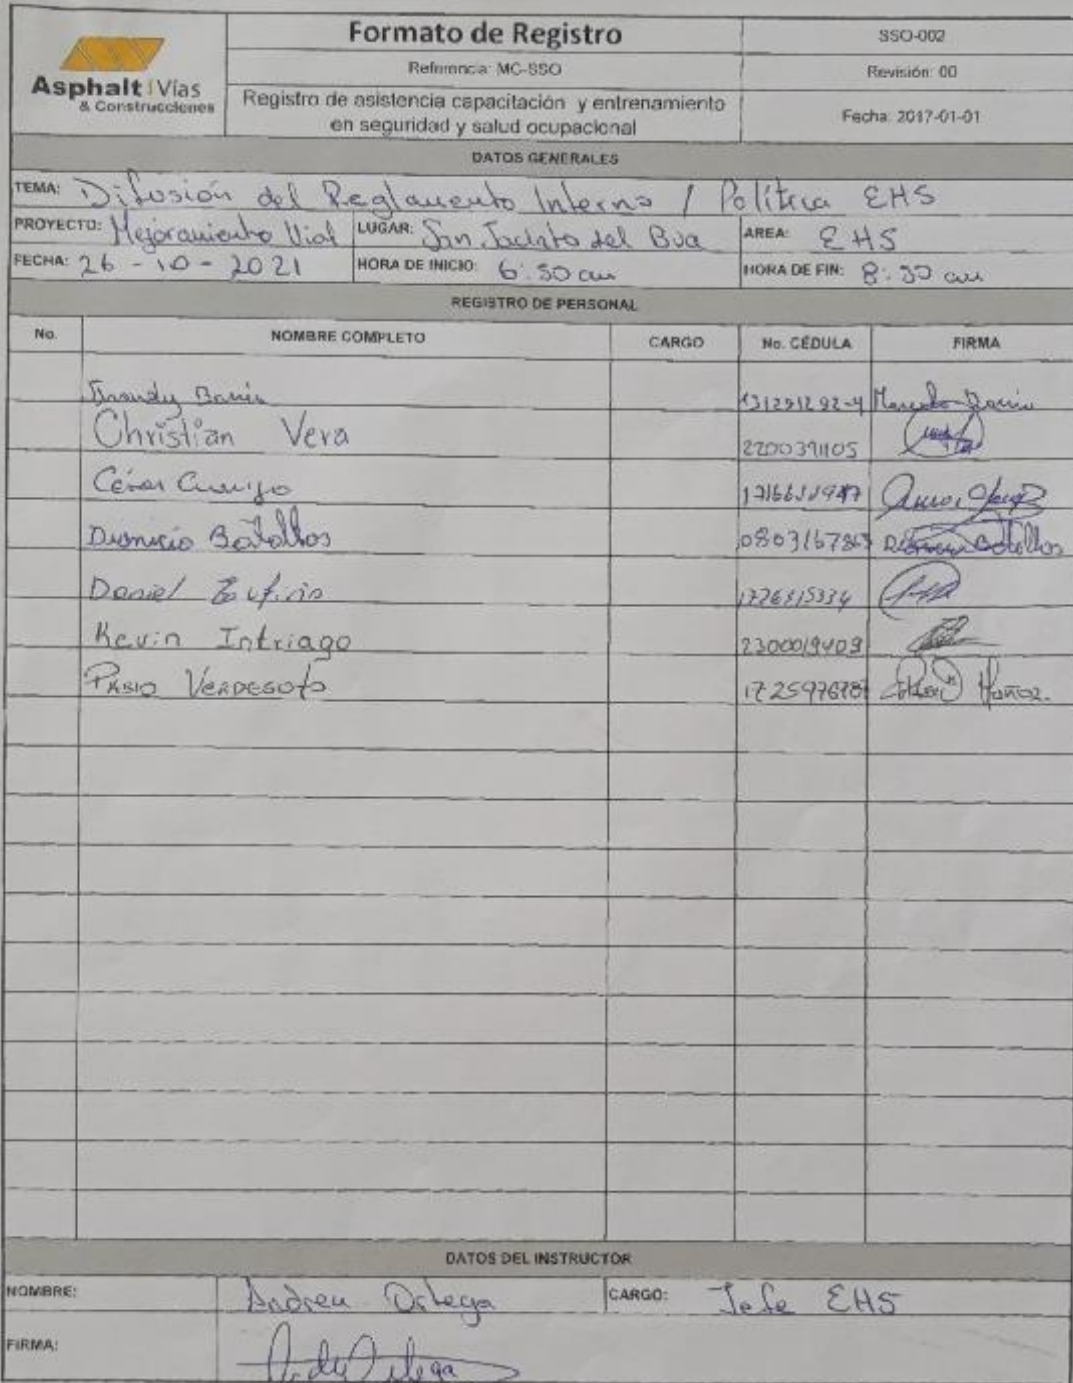 Asphalt Vías
& Construcciones
Formato de Registro
Referencia: MC-SSO
Registro de asistencia capacitación y entrenamiento
en seguridad y salud ocupacional
SSO-002
Revisión: 00
Fecha: 2017-01-01
DATOS GENERALES
TEMA: Difusión del Reglamento Interno / Política EHS
PROYECTO: Mejoramiento Vial LUGAR: San Jacinto del Bua AREA: EHS
FECHA: 26 - 10 - 2021 HORA DE INICIO: HORA DE FIN:
REGISTRO DE PERSONAL
No. NOMBRE COMPLETO CARGO No. CÉDULA FIRMA
Christian Vera 2200391105
César
Dionicio Batallos
Daniel
Kevin Intriago 2300019409
Pablo Verdesoto Muñoz.
DATOS DEL INSTRUCTOR
NOMBRE: Andrea Ortega CARGO: Jefe EHS
FIRMA: